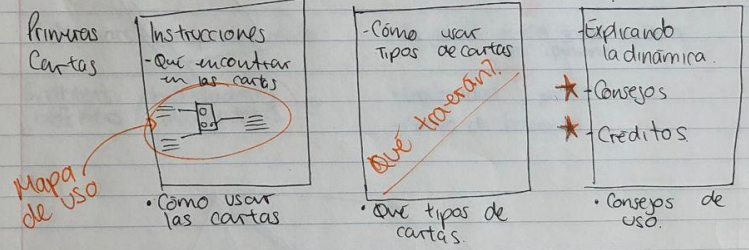 Primeras
Cartas
Instrucciones
-Qué encontrar
en las cartas
Mapa
de uso
• Cómo usar
las cartas
-Cómo usar
Tipos de cartas
Qué traerán?
• Qué tipos de
cartas.
-Explicando
la dinámica.
-Consejos
-Créditos.
• Consejos de
uso.